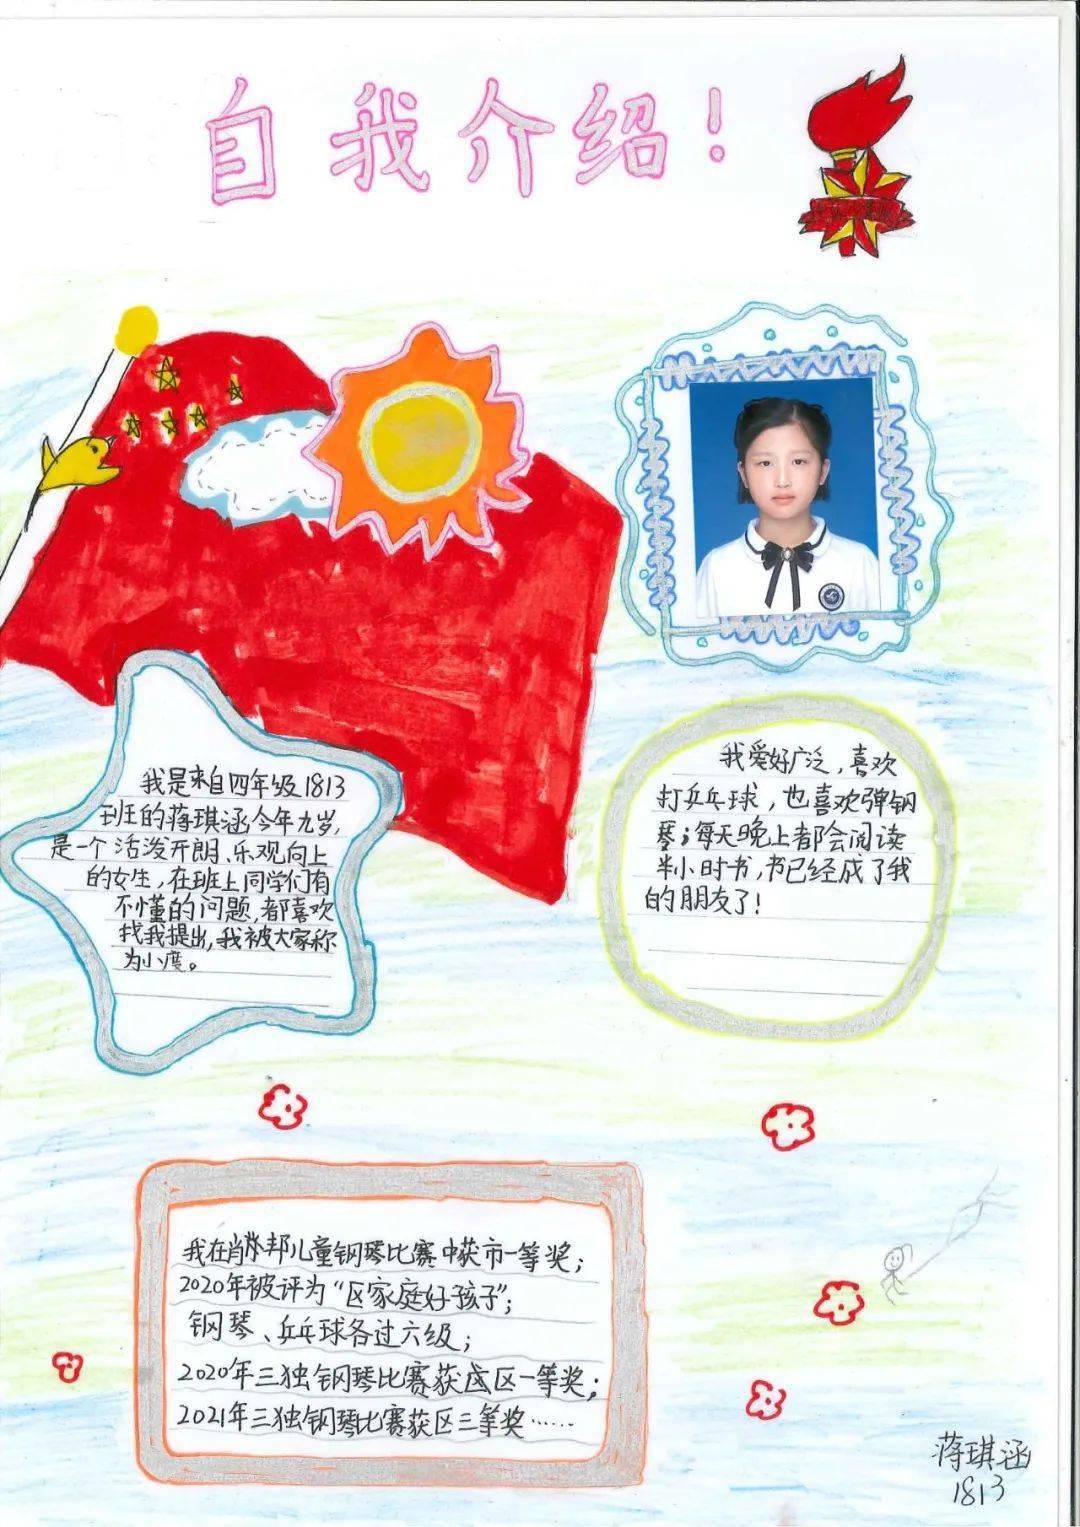 自我介绍！
我是来自四年级1813
班的蒋琪涵,今年九岁,
是一个活泼开朗、乐观向上
的女生，在班上同学们有
不懂的问题，都喜欢
找我提出，我被大家称
为小度。
我爱好广泛，喜欢
打乒乓球，也喜欢弹钢
琴；每天晚上都会阅读
半小时书，书已经成了我
的朋友了！
我在肖邦儿童钢琴比赛中获市一等奖；
2020年被评为“区家庭好孩子”；
钢琴、乒乓球各过六级；
2020年三独钢琴比赛获区一等奖；
2021年三独钢琴比赛获区三等奖……
蒋琪涵
1813